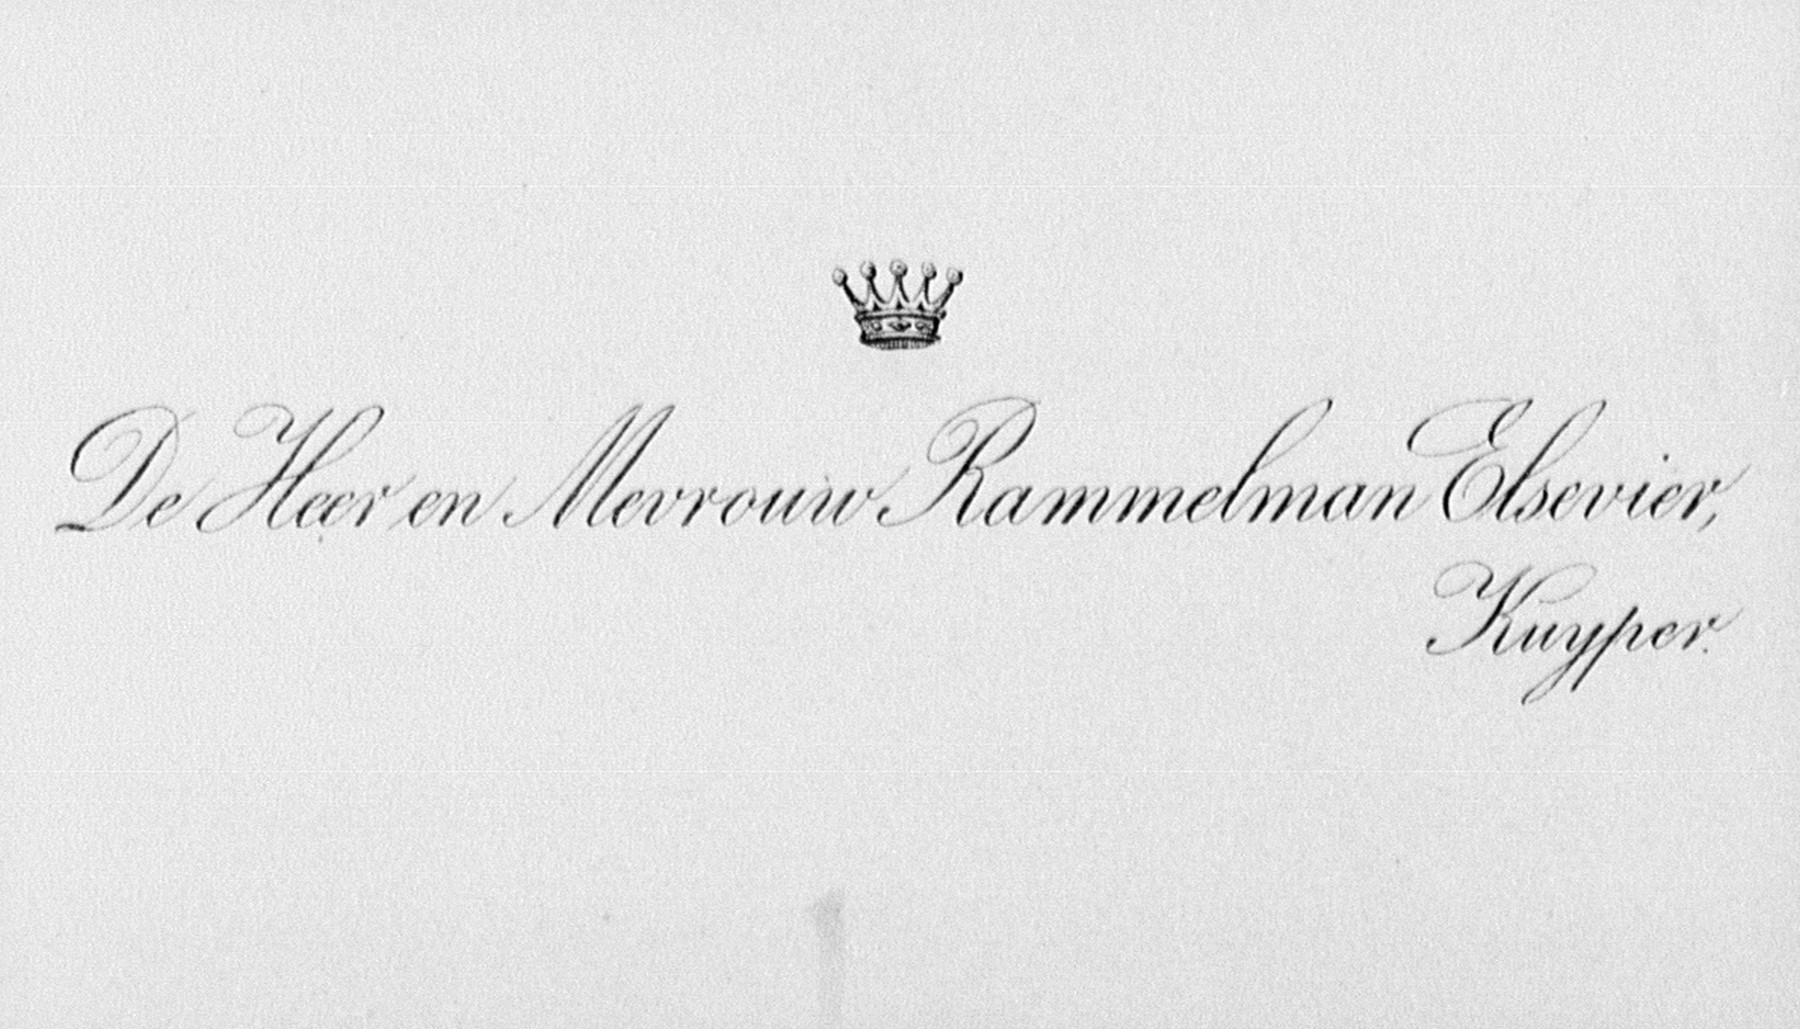 De Heer en Mevrouw Rammelman Elsevier,
Kuyper.